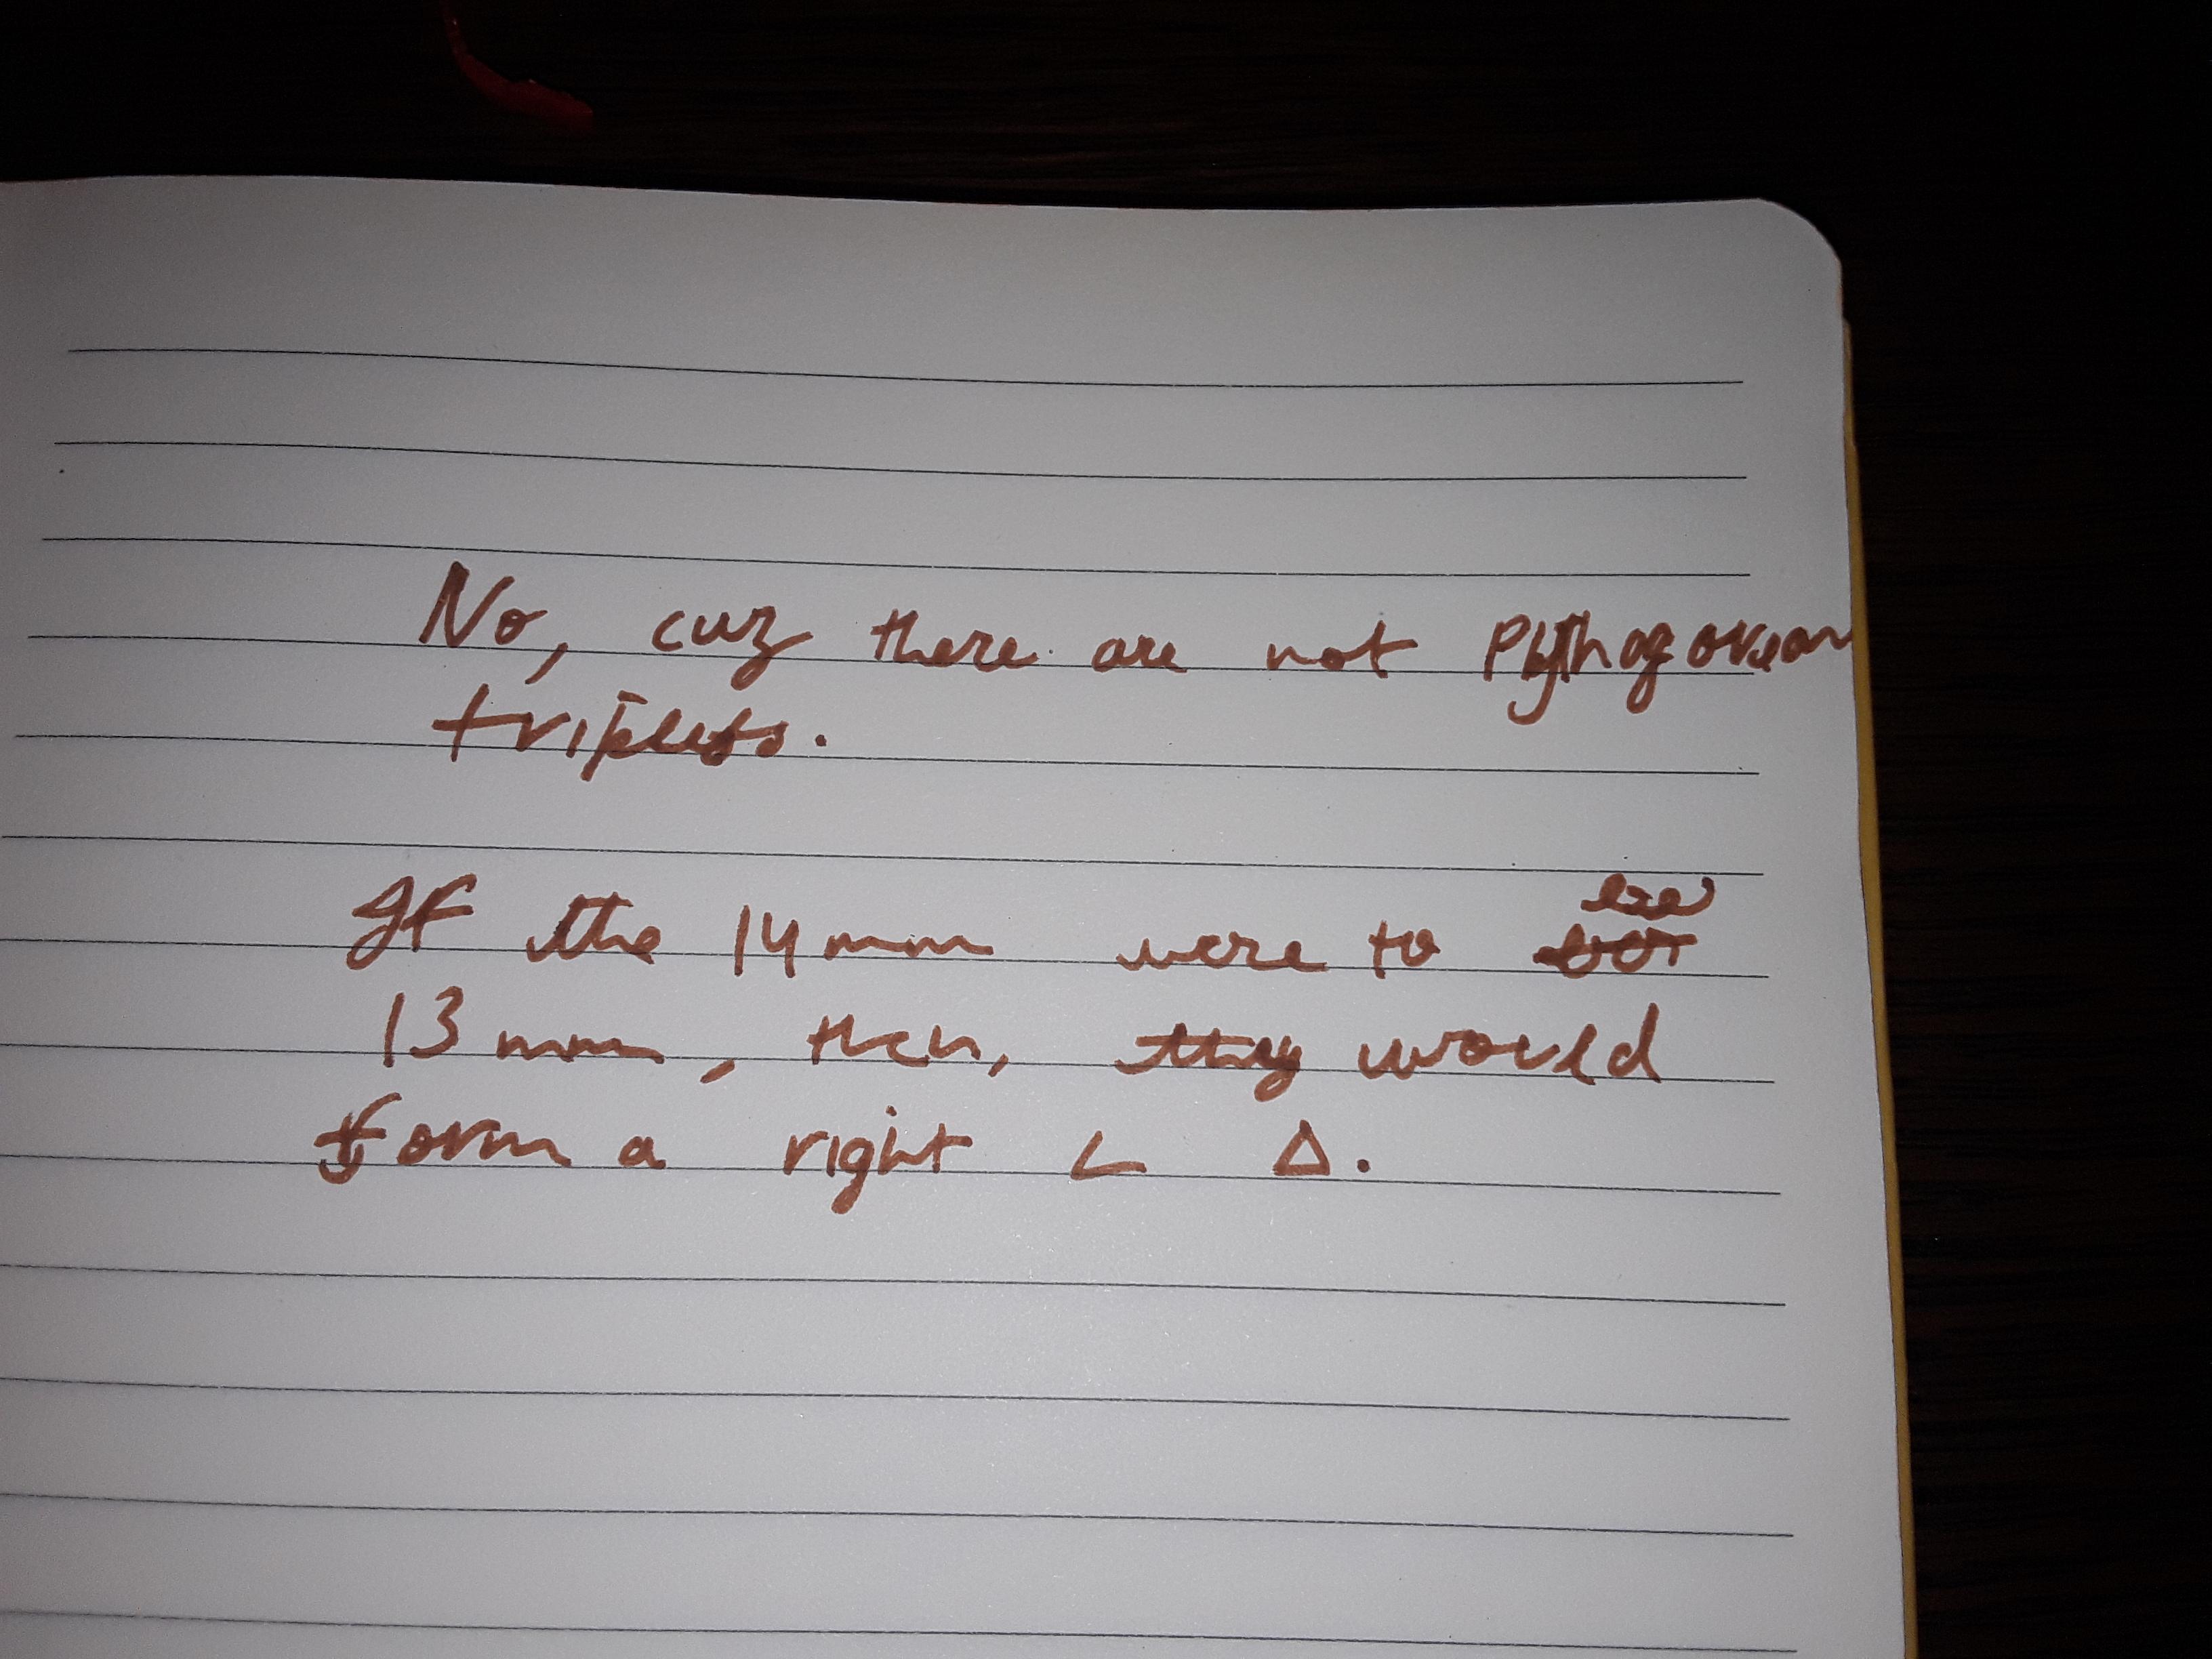 No, cuz there are not Pythagorean
triplets.
If the 14mm were to
13mm, then, they would
form a right ∠ Δ.